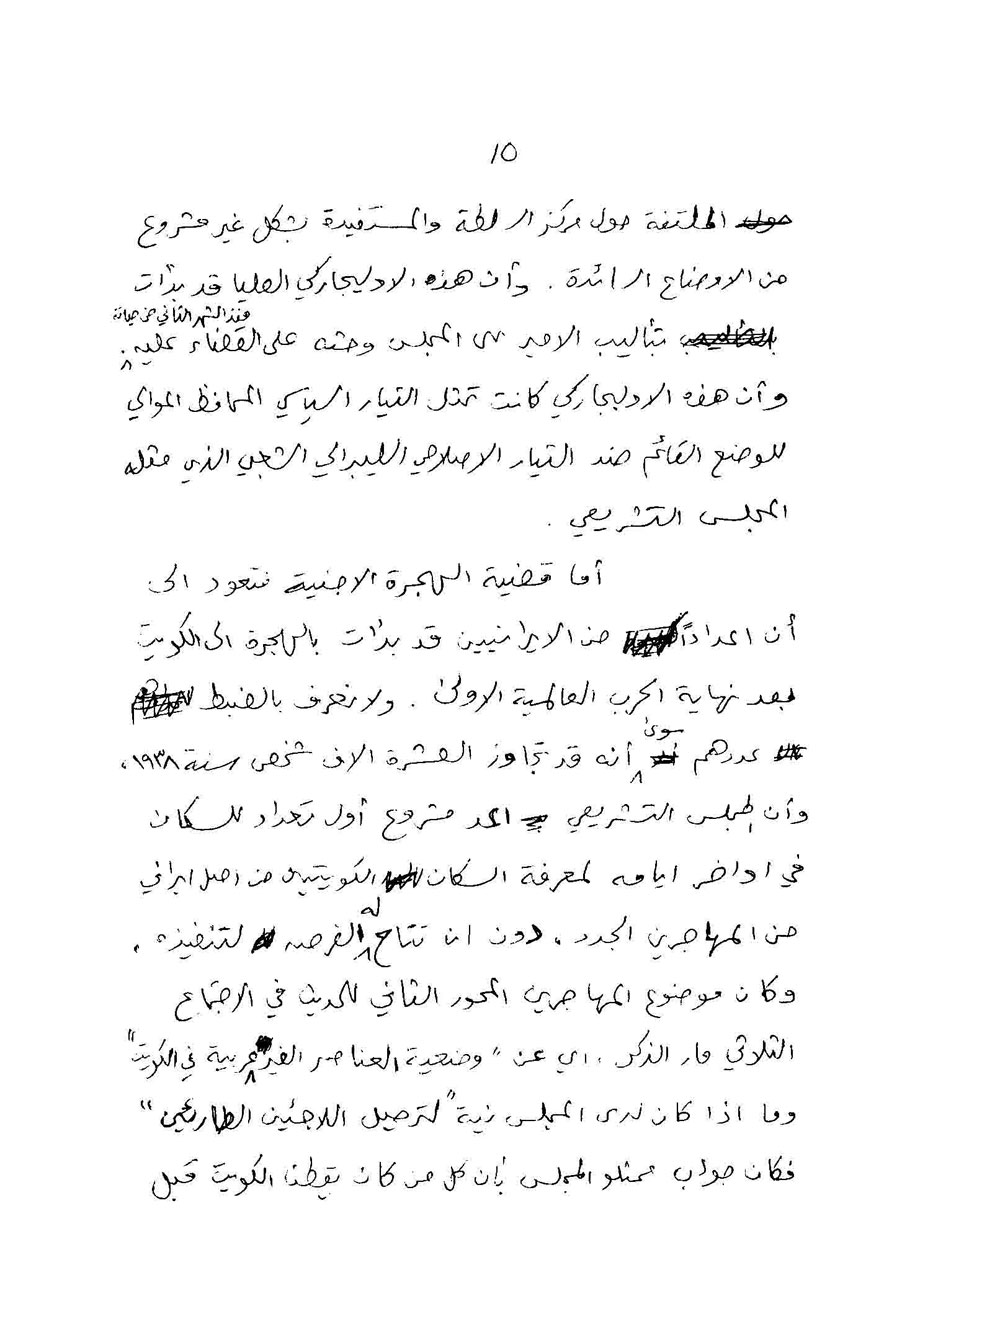 ١٥
حول الملتفة حول مركز السلطة والمستفيدة بشكل غير مشروع
من الاوضاع السائدة . وأن هذه الاوليجاركي العليا قد بدأت
منذ الشهر الثاني من حياته
بتأليب الامير على المجلس وحثه على القضاء عليه .
وأن هذه الاوليجاركي كانت تمثل التيار السياسي المحافظ الموالي
للوضع القائم ضد التيار الاصلاحي الليبرالي الشعبي الذي مثله
المجلس التشريعي .
أما قضية الهجرة الاجنبية فتعود الى
أن اعداداً من الايرانيين قد بدأت بالهجرة الى الكويت
بعد نهاية الحرب العالمية الاولى . ولا نعرف بالضبط
عددهم سوى أنه قد تجاوز العشرة الاف شخص سنة ١٩٣٨ ،
وأن المجلس التشريعي اعد مشروع أول تعداد للسكان
في اواخر ايامه لمعرفة السكان الكويتيين من اصل ايراني
من المهاجرين الجدد ، دون ان تتاح له الفرصه لتنفيذه .
وكان موضوع المهاجرين المحور الثاني للحديث في الاجتماع
الثلاثي مار الذكر . اي عن " وضعية العناصر الغير عربية في الكويت "
وما اذا كان لدى المجلس نية " لترحيل اللاجئين الطارئين "
فكان جواب ممثلو المجلس بأن كل من كان يقطن الكويت قبل